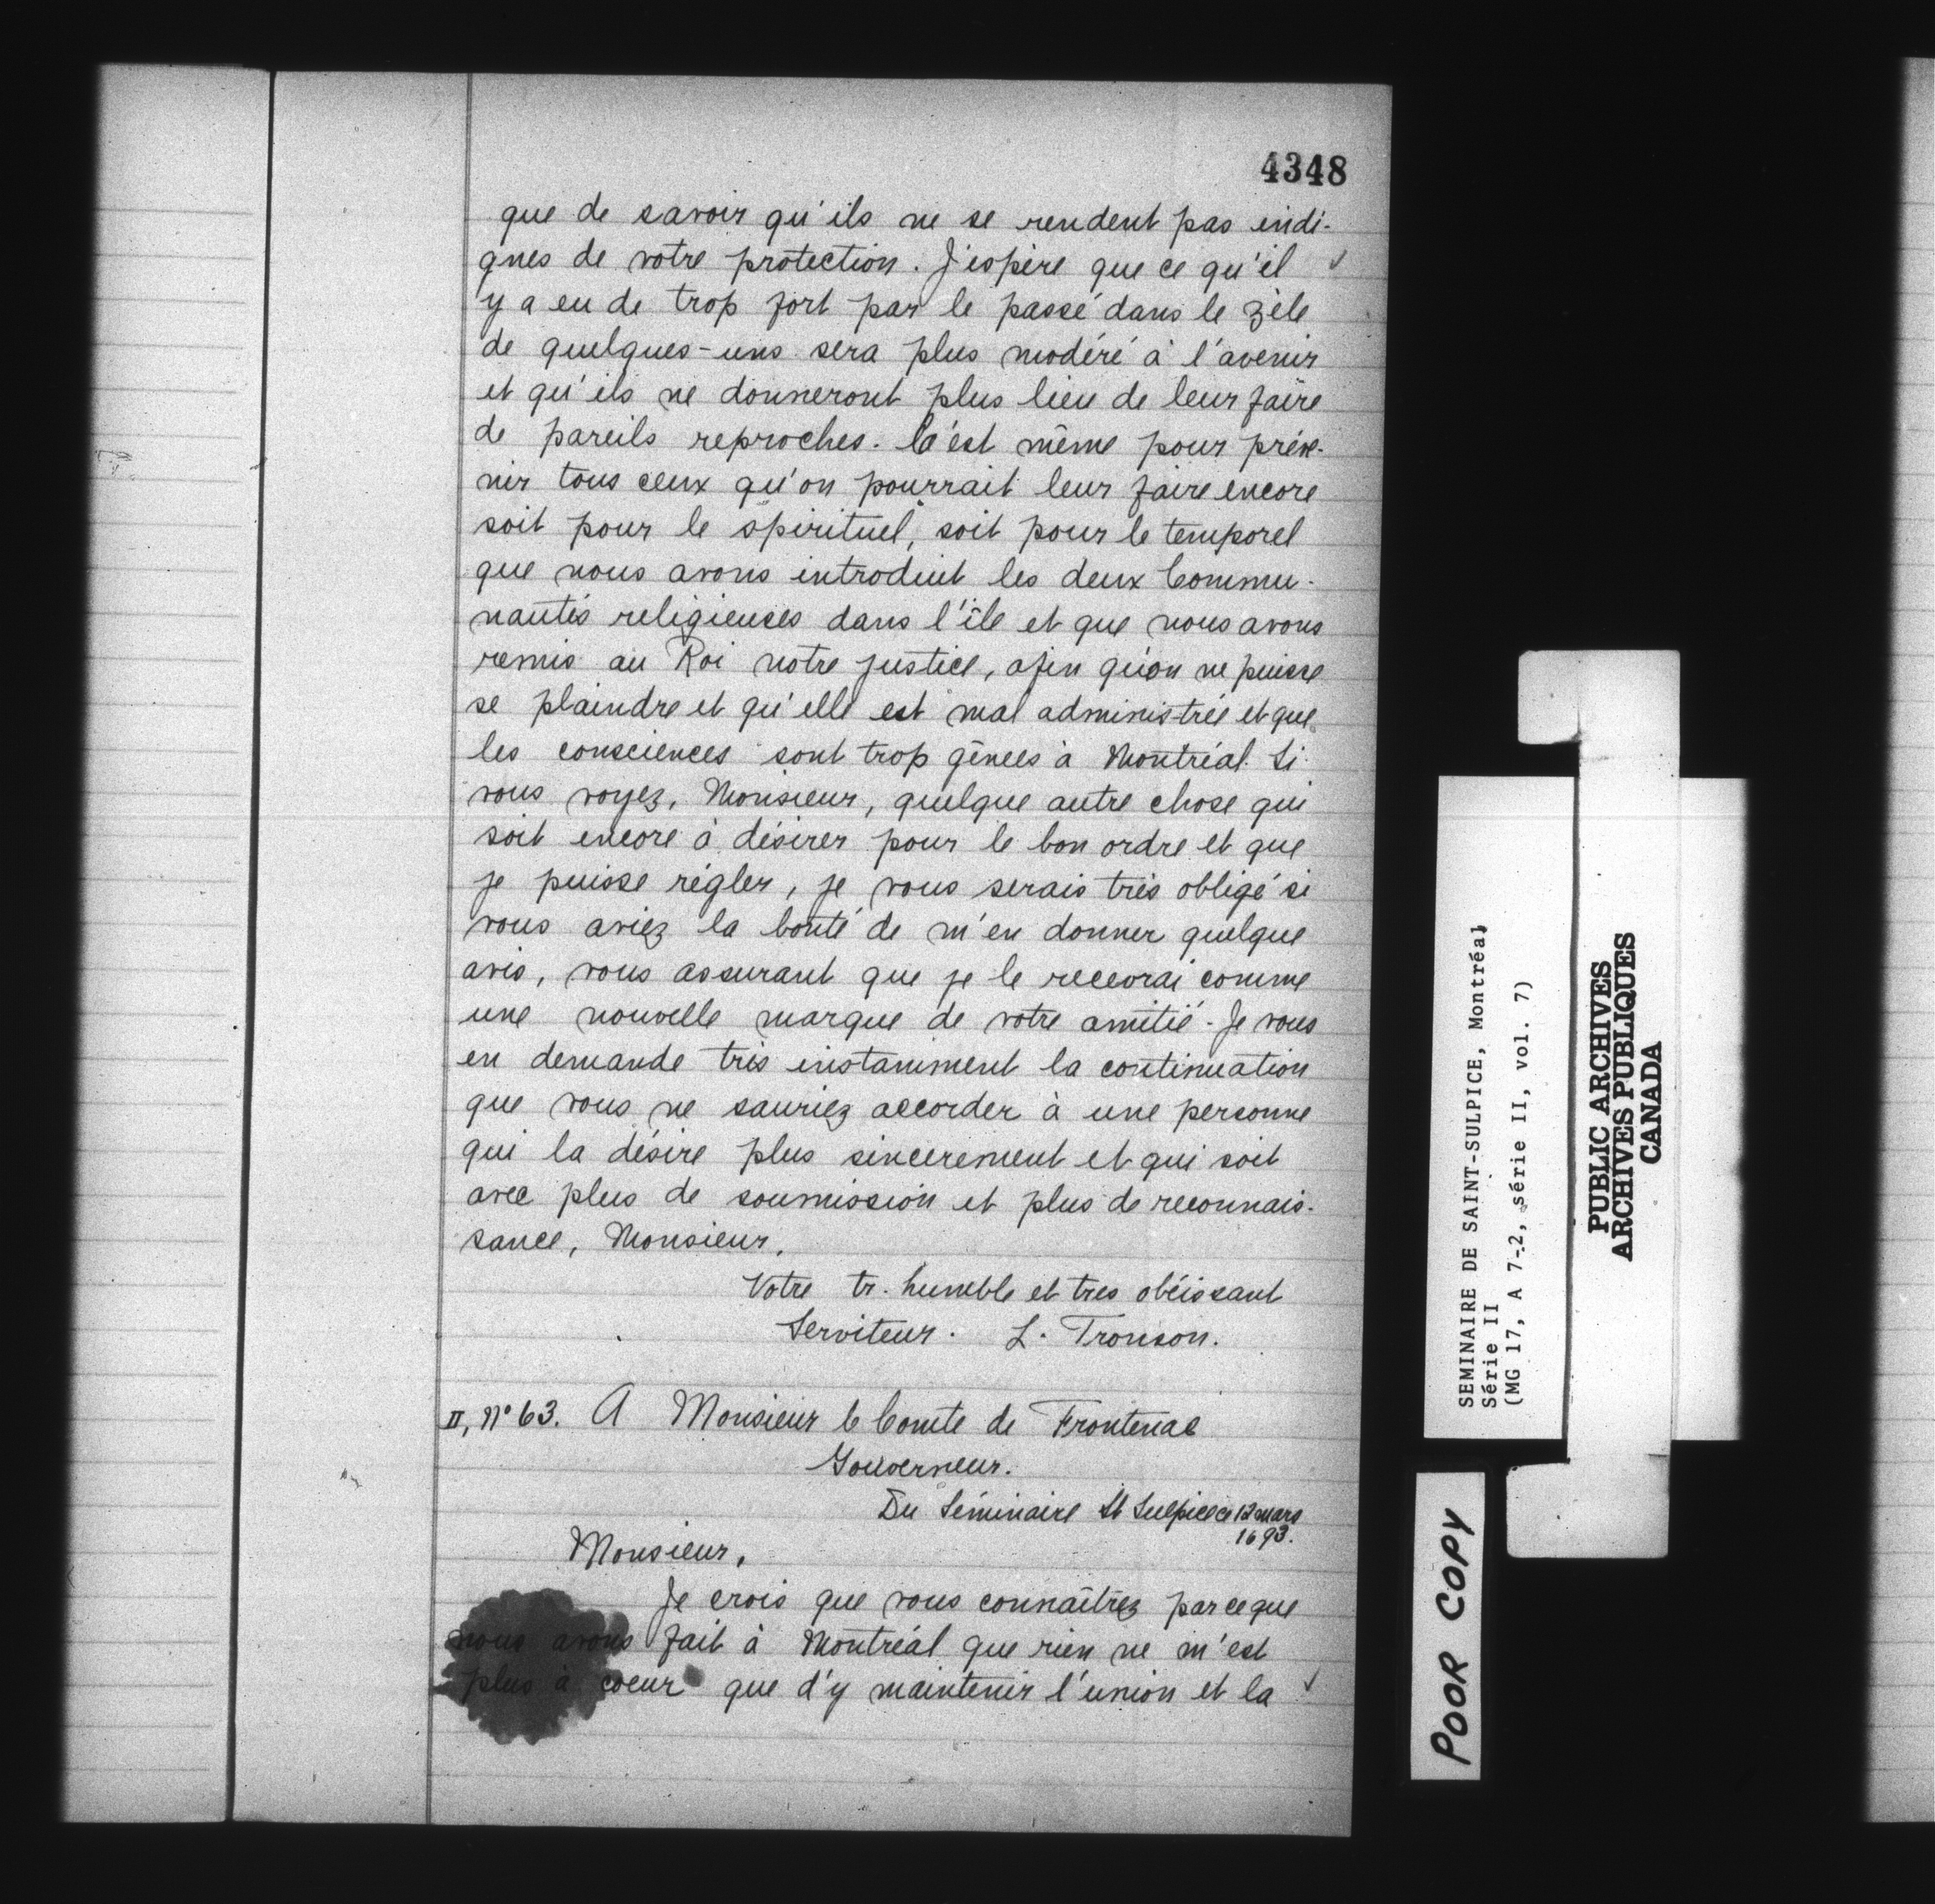 4348
que de savoir qu'ils ne se rendent pas indi-
gnes de votre protection. J'espère que ce qu'il ✓
y a eu de trop fort par le passé dans le zèle
de quelques-uns sera plus modéré à l'avenir
et qu'ils ne donneront plus lieu de leur faire
de pareils reproches. C'est même pour préve-
nir tous ceux qu'on pourrait leur faire encore
soit pour le spirituel, soit pour le temporel
que nous avons introduit les deux Commu-
nautés religieuses dans l'île et que nous avons
remis au Roi notre justice, afin qu'on ne puisse
se plaindre et qu'elle est mal administrée et que
les consciences sont trop gênées à Montréal. Si
vous voyez, Monsieur, quelque autre chose qui
soit encore à désirer pour le bon ordre et que
je puisse régler, je vous serais très obligé si
vous aviez la bonté de m'en donner quelque
avis, vous assurant que je le recevrai comme
une nouvelle marque de votre amitié. Je vous
en demande très instamment la continuation
que vous ne sauriez accorder à une personne
qui la désire plus sincerement et qui soit
avec plus de soumission et plus de reconnais-
sance, Monsieur,
Votre tr. humble et tres obéissant
Serviteur. L. Tronson.
II, N° 63. A Monsieur le Comte de Frontenac
Gouverneur.
Du Séminaire St Sulpice ce 12 mars
1693.
Monsieur,
Je crois que vous connaîtrez par ce que
nous avons fait à Montréal que rien ne m'est
plus à coeur que d'y maintenir l'union et la ✓
SEMINAIRE DE SAINT-SULPICE, Montréal
Série II
(MG 17, A 7-2, série II, vol. 7)
PUBLIC ARCHIVES
ARCHIVES PUBLIQUES
CANADA
POOR COPY